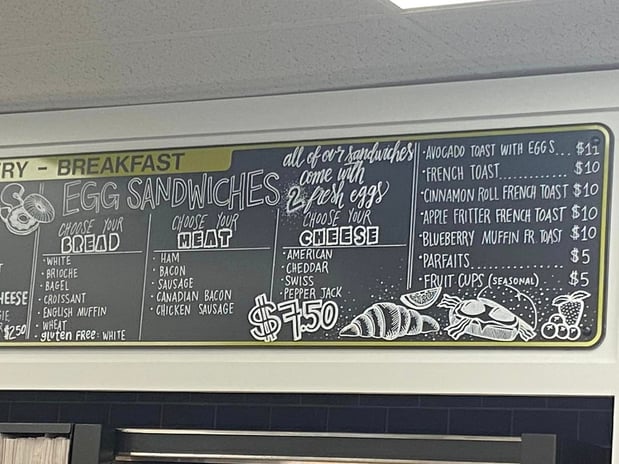 RY - BREAKFAST
EGG SANDWICHES
all of our sandwiches
come with
2 fresh eggs
CHOOSE YOUR
BREAD
• WHITE
• BRIOCHE
• BAGEL
• CROISSANT
• ENGLISH MUFFIN
• WHEAT
• gluten free: WHITE
CHOOSE YOUR
MEAT
• HAM
• BACON
• SAUSAGE
• CANADIAN BACON
• CHICKEN SAUSAGE
CHOOSE YOUR
CHEESE
• AMERICAN
• CHEDDAR
• SWISS
• PEPPER JACK
$7.50
• AVOCADO TOAST WITH EGGS... $11
• FRENCH TOAST............ $10
• CINNAMON ROLL FRENCH TOAST $10
• APPLE FRITTER FRENCH TOAST $10
• BLUEBERRY MUFFIN FR TOAST $10
• PARFAITS $5
• FRUIT CUPS (SEASONAL) $5
HEESE
$250